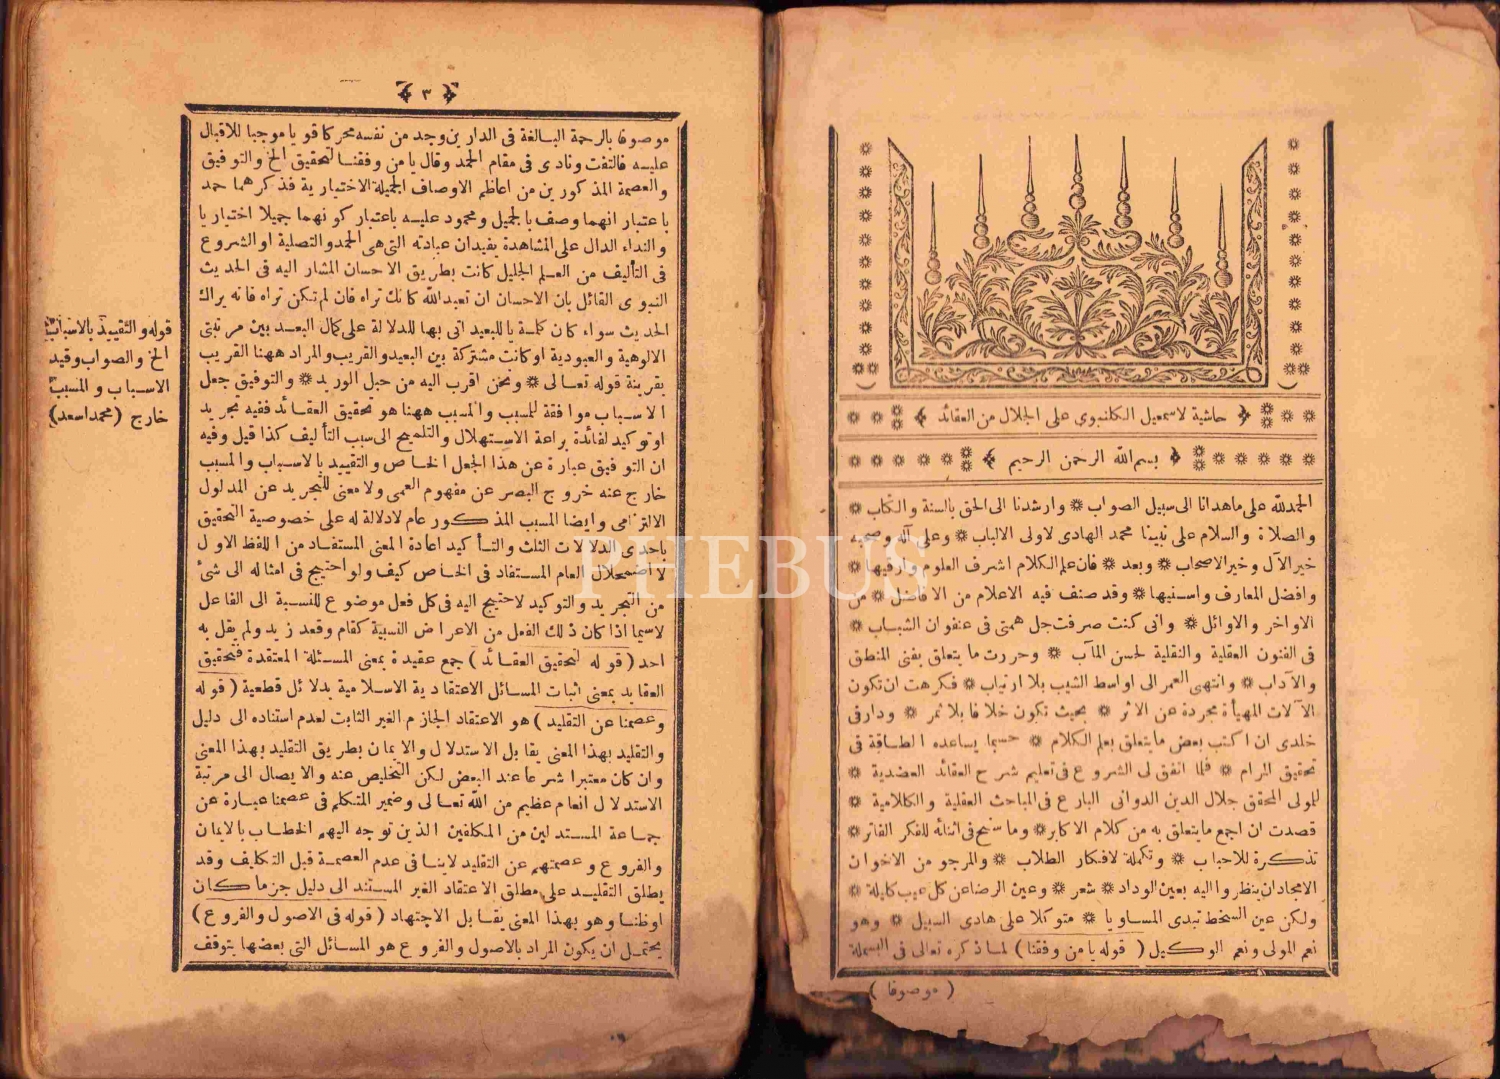 حاشية لاسمعيل الكلنبوى على الجلال من العقائد
بسم الله الرحمن الرحيم
الحمدلله على ماهدانا الى سبيل الصواب * وارشدنا الى الحق بالسنة والكتاب *
والصلاة والسلام على نبينا محمد الهادى لاولى الالباب * وعلى آله وصحبه
خير الآل وخير الاصحاب * وبعد * فان علم الكلام اشرف العلوم وارفيها *
وافضل المعارف واسنيها * وقد صنف فيه الاعلام من الافاضل * من
الاواخر والاوائل * وانى كنت صرفت جل همتى فى عنفوان الشباب *
فى الفنون العقلية والنقلية لحسن المآب * وحررت ما يتعلق بفنى المنطق
والآداب * وانتهى العمر الى اواسط الشيب بلا ارتياب * فكرهت ان تكون
الآلات المهيأة مجردة عن الاثر * بحيث تكون خلافا بلا ثمر * ودار فى
خلدى ان اكتب بعض ما يتعلق بعلم الكلام * حسبما يساعده الطاقة فى
تحقيق المرام * فلما اتفق لى الشروع فى تعليم شرح العقائد العضدية *
للمولى المحقق جلال الدين الدوانى البارع فى المباحث العقلية والكلامية *
قصدت ان اجمع ما يتعلق به من كلام الاكابر * وما سنح فى اثنائه للفكر الفاتر *
تذكرة للاحباب * وتكملة لافكار الطلاب * والمرجو من الاخوان
الامجاد ان ينظروا اليه بعين الوداد * شعر * وعين الرضا عن كل عيب كليلة *
ولكن عين السخط تبدى المساويا * متوكلا على هادى السبيل * وهو
نعم المولى ونعم الوكيل ( قوله يا من وفقنا ) لما ذكره تعالى فى البسملة
( موصوفا )
PHEBUS
٣
موصوفا بالرحمة البالغة فى الدارين وجد من نفسه محركا قويا موجبا للاقبال
عليه فالتفت ونادى فى مقام الحمد وقال يا من وفقنا لتحقيق الخ والتوفيق
والعصمة المذكورين من اعاظم الاوصاف الجميلة الاختيارية فذكرهما حمد
باعتبار انهما وصف بالجميل ومحمود عليه باعتبار كونهما جميلا اختياريا
والنداء الدال على المشاهدة يفيد ان عبادته التى هى الحمد والتصلية او الشروع
فى التأليف من العلم الجليل كانت بطريق الاحسان المشار اليه فى الحديث
النبوى القائل بان الاحسان ان تعبد الله كانك تراه فان لم تكن تراه فانه يراك
الحديث سواء كان كلمة يا للبعيد اتى بها للدلالة على كمال البعد بين مرتبتى
الالوهية والعبودية او كانت مشتركة بين البعيد والقريب والمراد ههنا القريب
بقرينة قوله تعالى * ونحن اقرب اليه من حبل الوريد * والتوفيق جعل
الاسباب موافقة للمسبب والمسبب ههنا هو تحقيق العقائد ففيه تجريد
او توكيد لفائدة براعة الاستهلال والتلميح الى سبب التأليف كذا قيل وفيه
ان التوفيق عبارة عن هذا الجعل الخاص والتقييد بالاسباب والمسبب
خارج عنه خروج البصر عن مفهوم العمى ولا معنى للتجريد عن المدلول
الالتزامى وايضا المسبب المذكور عام لا دلالة له على خصوصية التحقيق
باحدى الدلالات الثلث والتأكيد اعادة المعنى المستفاد من اللفظ الاول
لاضمحلال العام المستفاد فى الخاص كيف ولو احتيج فى امثاله الى شئ
من التجريد والتوكيد لاحتيج اليه فى كل فعل موضوع للنسبة الى الفاعل
لاسيما اذا كان ذلك الفعل من الاعراض النسبية كقام وقعد زيد ولم يقل به
احد ( قوله لتحقيق العقائد ) جمع عقيدة بمعنى المسئلة المعتقدة فتحقيق
العقايد بمعنى اثبات المسائل الاعتقادية الاسلامية بدلائل قطعية ( قوله
وعصمنا عن التقليد ) هو الاعتقاد الجازم الغير الثابت لعدم استناده الى دليل
والتقليد بهذا المعنى يقابل الاستدلال والايمان بطريق التقليد بهذا المعنى
وان كان معتبرا شرعا عند البعض لكن التخليص عنه والايصال الى مرتبة
الاستدلال انعام عظيم من الله تعالى وضمير المتكلم فى عصمنا عبارة عن
جماعة المستدلين من المكلفين الذين توجه اليهم الخطاب بالايمان
والفروع وعصمتهم عن التقليد لا ينافى عدم العصمة قبل التكليف وقد
يطلق التقليد على مطلق الاعتقاد الغير المستند الى دليل جزما كان
او ظنا وهو بهذا المعنى يقابل الاجتهاد ( قوله فى الاصول والفروع )
يحتمل ان يكون المراد بالاصول والفروع هو المسائل التى بعضها يتوقف
قوله والتقييد بالاسباب
الخ والصواب وقيد
الاسباب والمسبب
خارج (محمد اسعد)